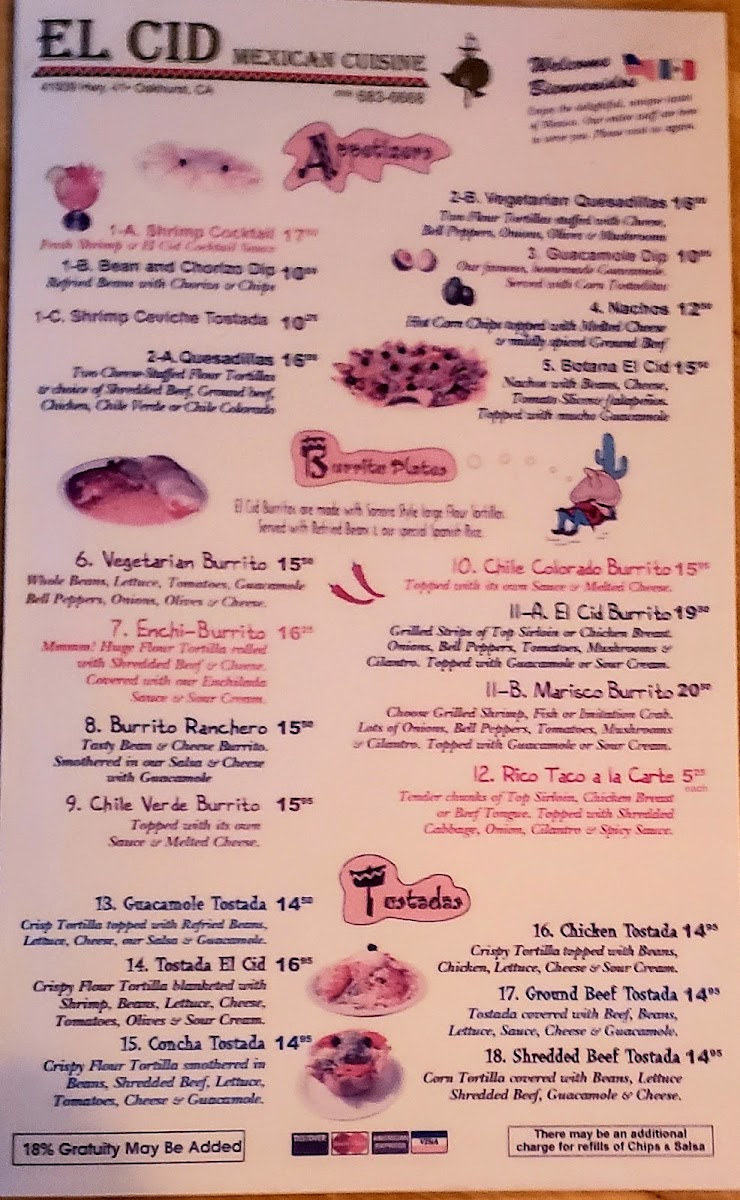 EL CID MEXICAN CUISINE
Hwy. 41 Oakhurst, CA
683-6668
Welcome
Bienvenidos
Enjoy the delightful, unique tastes
of Mexico. Our entire staff are here
to serve you. Please visit us again.
Appetizers
1-A. Shrimp Cocktail 17
Fresh Shrimp & El Cid Cocktail Sauce
1-B. Bean and Chorizo Dip 10
Refried Beans with Chorizo & Chips
1-C. Shrimp Ceviche Tostada 10
2-A. Quesadillas 16
Two Cheese Stuffed Flour Tortillas
& choice of Shredded Beef, Ground beef,
Chicken, Chile Verde or Chile Colorado
2-B. Vegetarian Quesadillas 16
Two Flour Tortillas stuffed with Cheese,
Bell Peppers, Onions, Olives & Mushrooms
3. Guacamole Dip 10
Our famous, homemade Guacamole.
Served with Corn Tostaditas
4. Nachos 12
Hot Corn Chips topped with Melted Cheese
& mildly spiced Ground Beef
5. Botana El Cid 15
Nachos with Beans, Cheese,
Tomato Slices & Jalapeños.
Topped with mucho Guacamole
Burrito Plates
El Cid Burritos are made with Sonora Style large Flour Tortillas.
Served with Refried Beans & our special Spanish Rice.
6. Vegetarian Burrito 15⁵⁰
Whole Beans, Lettuce, Tomatoes, Guacamole
Bell Peppers, Onions, Olives & Cheese.
7. Enchi-Burrito 16
Mmmm! Huge Flour Tortilla rolled
with Shredded Beef & Cheese.
Covered with our Enchilada
Sauce & Sour Cream.
8. Burrito Ranchero 15⁵⁰
Tasty Bean & Cheese Burrito.
Smothered in our Salsa & Cheese
with Guacamole
9. Chile Verde Burrito 15⁹⁵
Topped with its own
Sauce & Melted Cheese.
10. Chile Colorado Burrito 15⁹⁵
Topped with its own Sauce & Melted Cheese.
11-A. El Cid Burrito 19⁵⁰
Grilled Strips of Top Sirloin or Chicken Breast.
Onions, Bell Peppers, Tomatoes, Mushrooms &
Cilantro. Topped with Guacamole or Sour Cream.
11-B. Marisco Burrito 20⁵⁰
Choose Grilled Shrimp, Fish or Imitation Crab.
Lots of Onions, Bell Peppers, Tomatoes, Mushrooms
& Cilantro. Topped with Guacamole or Sour Cream.
12. Rico Taco a la Carte 5²⁵
each
Tender chunks of Top Sirloin, Chicken Breast
or Beef Tongue. Topped with Shredded
Cabbage, Onion, Cilantro & Spicy Sauce.
Tostadas
13. Guacamole Tostada 14⁵⁰
Crisp Tortilla topped with Refried Beans,
Lettuce, Cheese, our Salsa & Guacamole.
14. Tostada El Cid 16⁹⁵
Crispy Flour Tortilla blanketed with
Shrimp, Beans, Lettuce, Cheese,
Tomatoes, Olives & Sour Cream.
15. Concha Tostada 14⁹⁵
Crispy Flour Tortilla smothered in
Beans, Shredded Beef, Lettuce,
Tomatoes, Cheese & Guacamole.
16. Chicken Tostada 14⁹⁵
Crispy Tortilla topped with Beans,
Chicken, Lettuce, Cheese & Sour Cream.
17. Ground Beef Tostada 14⁹⁵
Tostada covered with Beef, Beans,
Lettuce, Sauce, Cheese & Guacamole.
18. Shredded Beef Tostada 14⁹⁵
Corn Tortilla covered with Beans, Lettuce
Shredded Beef, Guacamole & Cheese.
18% Gratuity May Be Added
DISCOVER MasterCard AMERICAN EXPRESS VISA
There may be an additional
charge for refills of Chips & Salsa